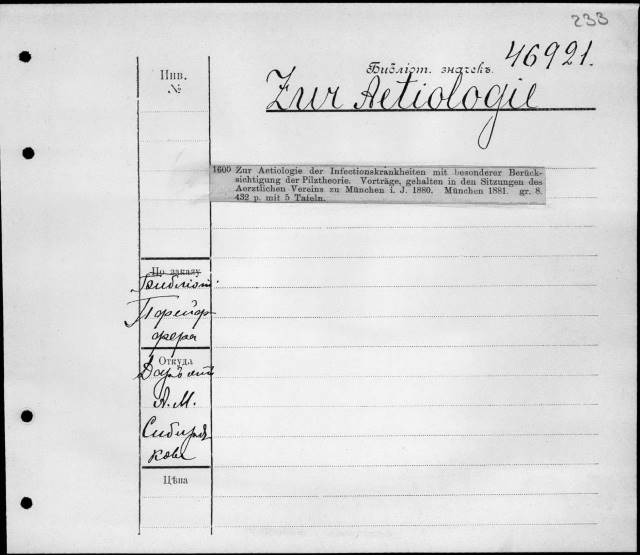 233
46921.
Инв.
№
Библіот. значекъ.
Zur Aetiologie
1600 Zur Aetiologie der Infectionskrankheiten mit besonderer Berück-
sichtigung der Pilztheorie. Vorträge, gehalten in den Sitzungen des
Aerztlichen Vereins zu München i. J. 1880. München 1881. gr. 8.
432 p. mit 5 Tafeln.
По заказу
Библіот.
Пфейф-
фера
Откуда
Даръ отъ
А. М.
Сибиря
кова
Цѣна